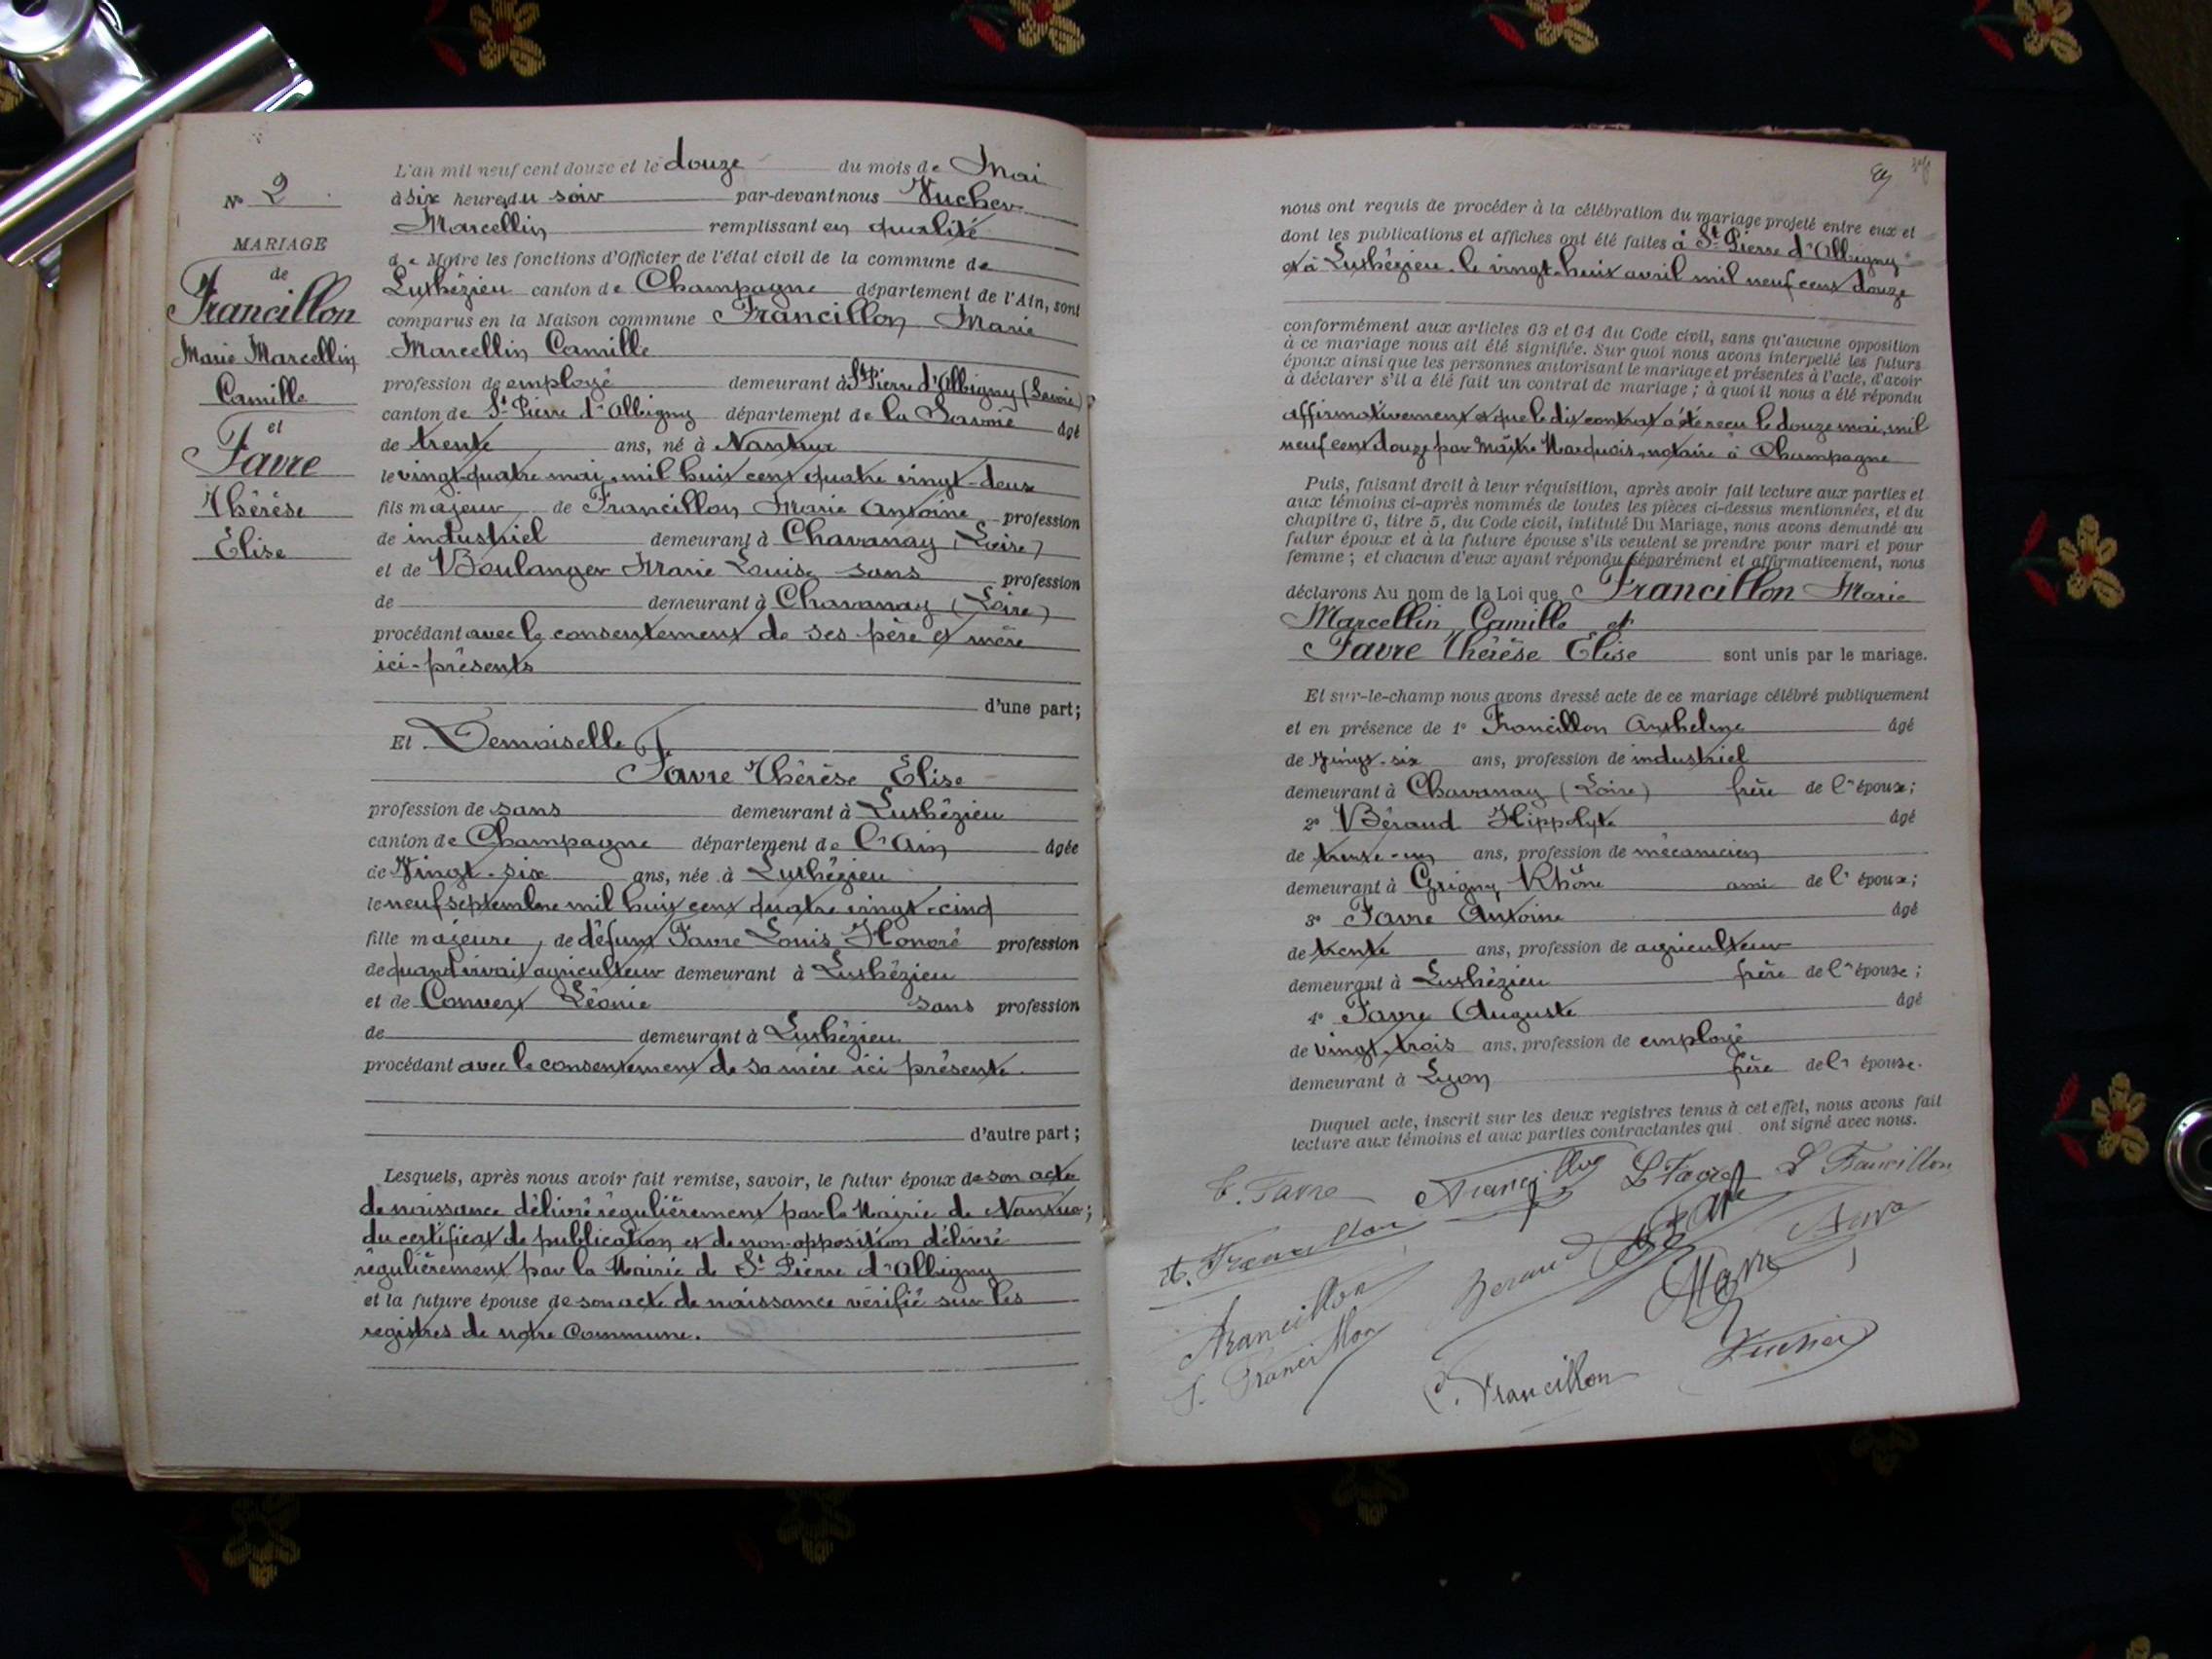 N° 2
MARIAGE
de
Francillon
Marie Marcellin
Camille
et
Favre
Thérèse
Elise
L'an mil neuf cent douze et le douze du mois de Mai
à six heures du soir par-devant nous Vucher
Marcellin remplissant en qualité
de Maire les fonctions d'Officier de l'état civil de la commune de
Luthézieu canton de Champagne département de l'Ain, sont
comparus en la Maison commune Francillon Marie
Marcellin Camille
profession de employé demeurant à St Pierre d'Albigny (Savoie)
canton de St Pierre d'Albigny département de la Savoie âgé
de trente ans, né à Nantua
le vingt-quatre mai, mil huit cent quatre vingt-deux
fils majeur de Francillon Marie Antoine profession
de industriel demeurant à Chavanay (Loire)
et de Boulanger Marie Louise sans profession
de demeurant à Chavanay (Loire)
procédant avec le consentement de ses père et mère
ici-présents
d'une part;
Et Demoiselle
Favre Thérèse Elise
profession de sans demeurant à Luthézieu
canton de Champagne département de l'Ain âgée
de Vingt-six ans, née à Luthézieu
le neuf septembre mil huit cent quatre vingt-cinq
fille majeure, de défunt Favre Louis Honoré profession
de quand vivait agriculteur demeurant à Luthézieu
et de Convert Léonie sans profession
de demeurant à Luthézieu
procédant avec le consentement de sa mère ici présente.
d'autre part;
Lesquels, après nous avoir fait remise, savoir, le futur époux de son acte
de naissance délivré régulièrement par la Mairie de Nantua;
du certificat de publication et de non-opposition délivré
régulièrement par la Mairie de St Pierre d'Albigny
et la future épouse de son acte de naissance vérifié sur les
registres de notre Commune.
nous ont requis de procéder à la célébration du mariage projeté entre eux et
dont les publications et affiches ont été faites à St Pierre d'Albigny
et à Luthézieu le vingt-huit avril mil neuf cent douze
conformément aux articles 63 et 64 du Code civil, sans qu'aucune opposition
à ce mariage nous ait été signifiée. Sur quoi nous avons interpellé les futurs
époux ainsi que les personnes autorisant le mariage et présentes à l'acte, d'avoir
à déclarer s'il a été fait un contrat de mariage; à quoi il nous a été répondu
affirmativement et que le dit contrat a été reçu le douze mai, mil
neuf cent douze par Maître Marquois, notaire à Champagne
Puis, faisant droit à leur réquisition, après avoir fait lecture aux parties et
aux témoins ci-après nommés de toutes les pièces ci-dessus mentionnées, et du
chapitre 6, titre 5, du Code civil, intitulé Du Mariage, nous avons demandé au
futur époux et à la future épouse s'ils veulent se prendre pour mari et pour
femme; et chacun d'eux ayant répondu séparément et affirmativement, nous
déclarons Au nom de la Loi que Francillon Marie
Marcellin Camille et
Favre Thérèse Elise sont unis par le mariage.
Et sur-le-champ nous avons dressé acte de ce mariage célébré publiquement
et en présence de 1° Francillon Anthelme âgé
de Vingt-six ans, profession de industriel
demeurant à Chavanay (Loire) frère de l'époux;
2° Béraud Hippolyte âgé
de trente-un ans, profession de mécanicien
demeurant à Grigny Rhône ami de l'époux;
3° Favre Antoine âgé
de trente ans, profession de agriculteur
demeurant à Luthézieu frère de l'épouse;
4° Favre Auguste âgé
de vingt-trois ans, profession de employé
demeurant à Lyon frère de l'épouse.
Duquel acte, inscrit sur les deux registres tenus à cet effet, nous avons fait
lecture aux témoins et aux parties contractantes qui ont signé avec nous.
Favre Francillon L Favre Francillon
A. Francillon Beraud Favre
Francillon
Francillon Vucher
C. Francillon